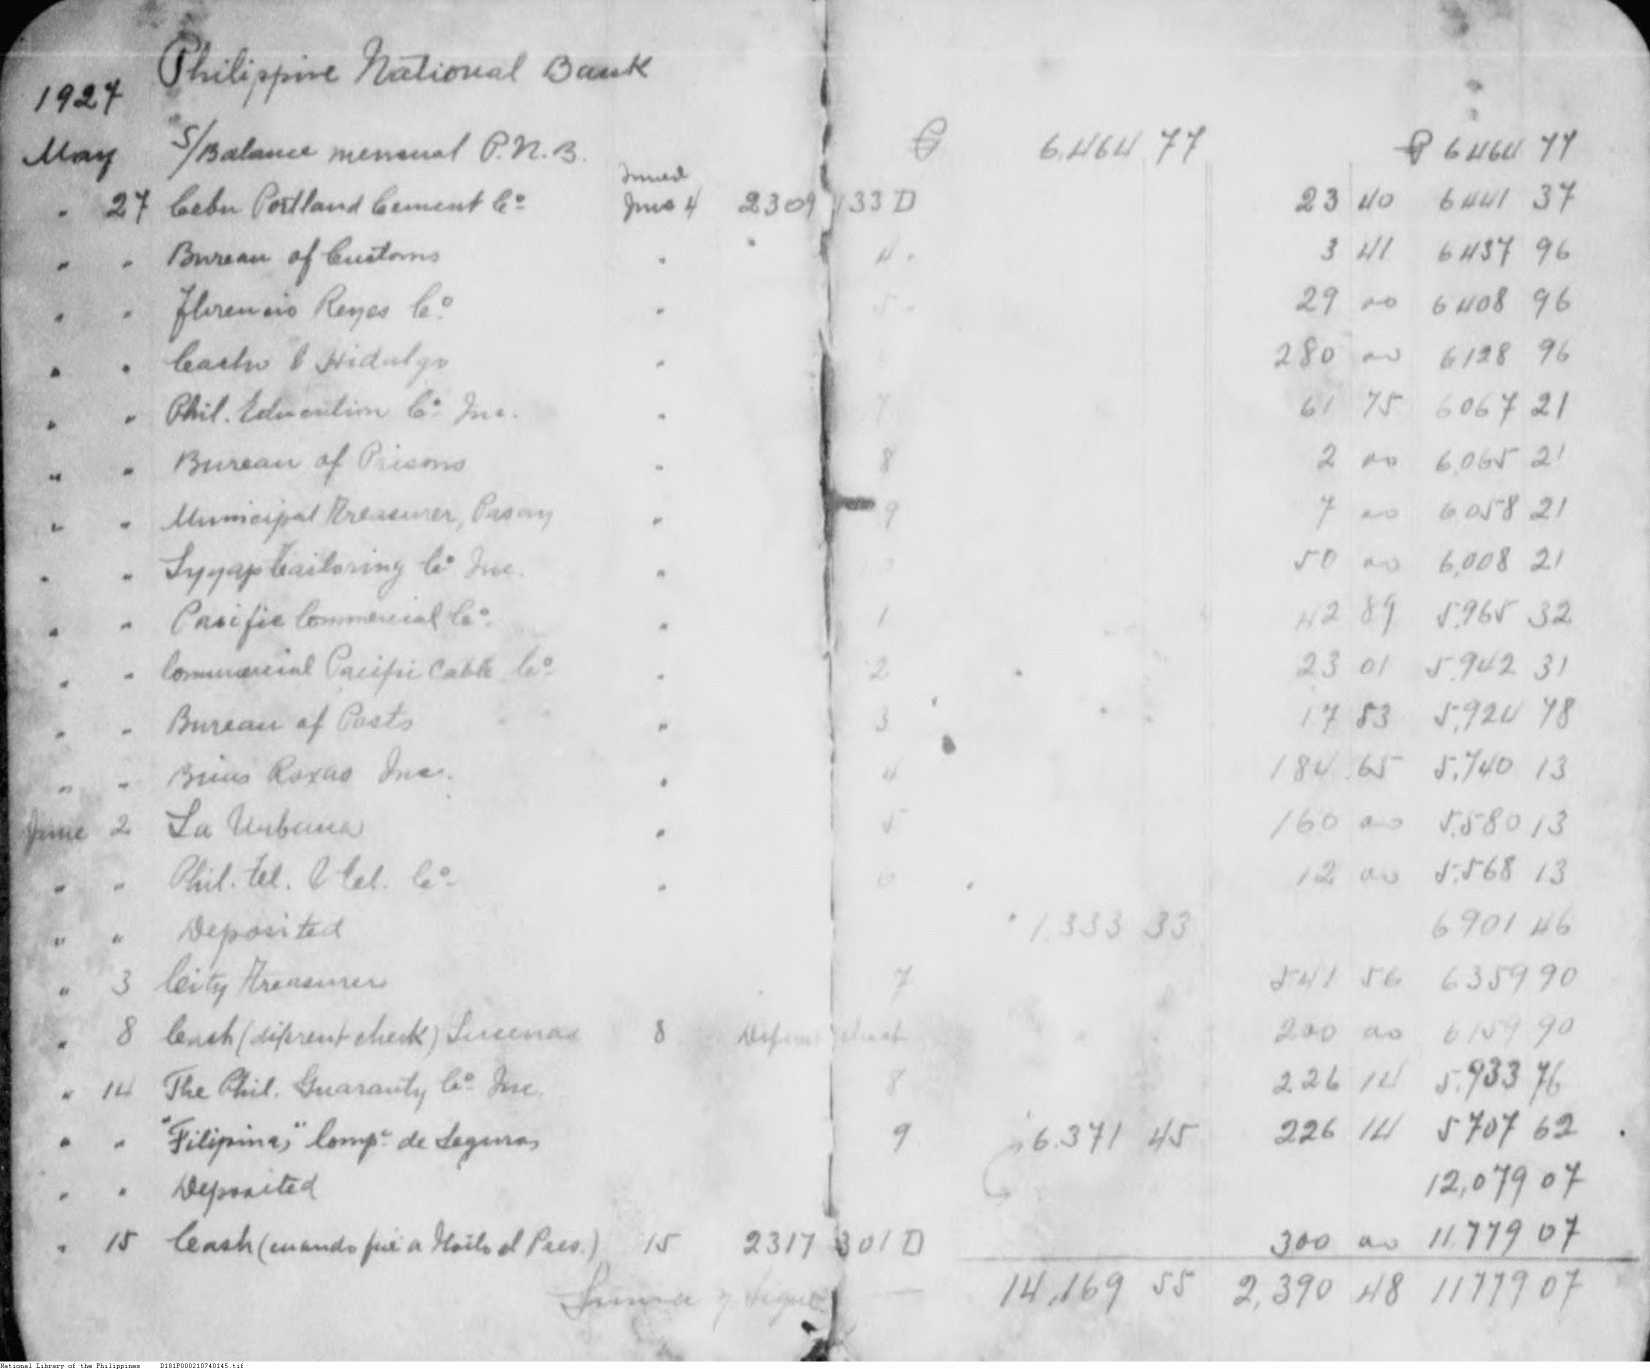 Philippine National Bank
1927
May S/Balance mensual P.N.B. ₱ 6,464 77 ₱ 6464 77
Issued
" 27 Cebu Portland Cement Cº June 4 2309 133 D 23 40 6441 37
" " Bureau of Customs " 4 " 3 41 6437 96
" " Florencio Reyes Cº " 5 " 29 00 6408 96
" " Cacho & Hidalgo " 280 00 6128 96
" " Phil. Education Cº Inc. " 7 61 75 6067 21
" " Bureau of Prisons " 8 2 00 6,065 21
" " Municipal Treasurer, Pasay " 9 7 00 6058 21
" " Syyap Tailoring Cº Inc. " 0 50 00 6,008 21
" " Pacific Commercial Cº " 1 42 89 5,965 32
" " Commercial Pacific Cable Cº " 2 23 01 5,942 31
" " Bureau of Posts " 3 17 53 5,924 78
" " Brias Roxas Inc. " 4 184 65 5,740 13
June 2 La Urbana " 5 160 00 5,580 13
" " Phil. Tel. & Tel. Cº " 6 12 00 5,568 13
" " Deposited 1,333 33 6901 46
" 3 City Treasurer 7 541 56 6359 90
" 8 Cash (diferent check) Lucenas 8 Diferent check 200 00 6159 90
" 14 The Phil. Guaranty Cº Inc. 8 226 14 5,933 76
" " "Filipinas," Compª de Seguros 9 6,371 45 226 14 5707 62
" " Deposited 12,079 07
" 15 Cash (cuando fué a Iloilo el Pres.) 15 2317 301 D 300 00 11,779 07
Suma y sigue 14,169 55 2,390 48 11779 07
National Library of the Philippines D101P000210740145.tif